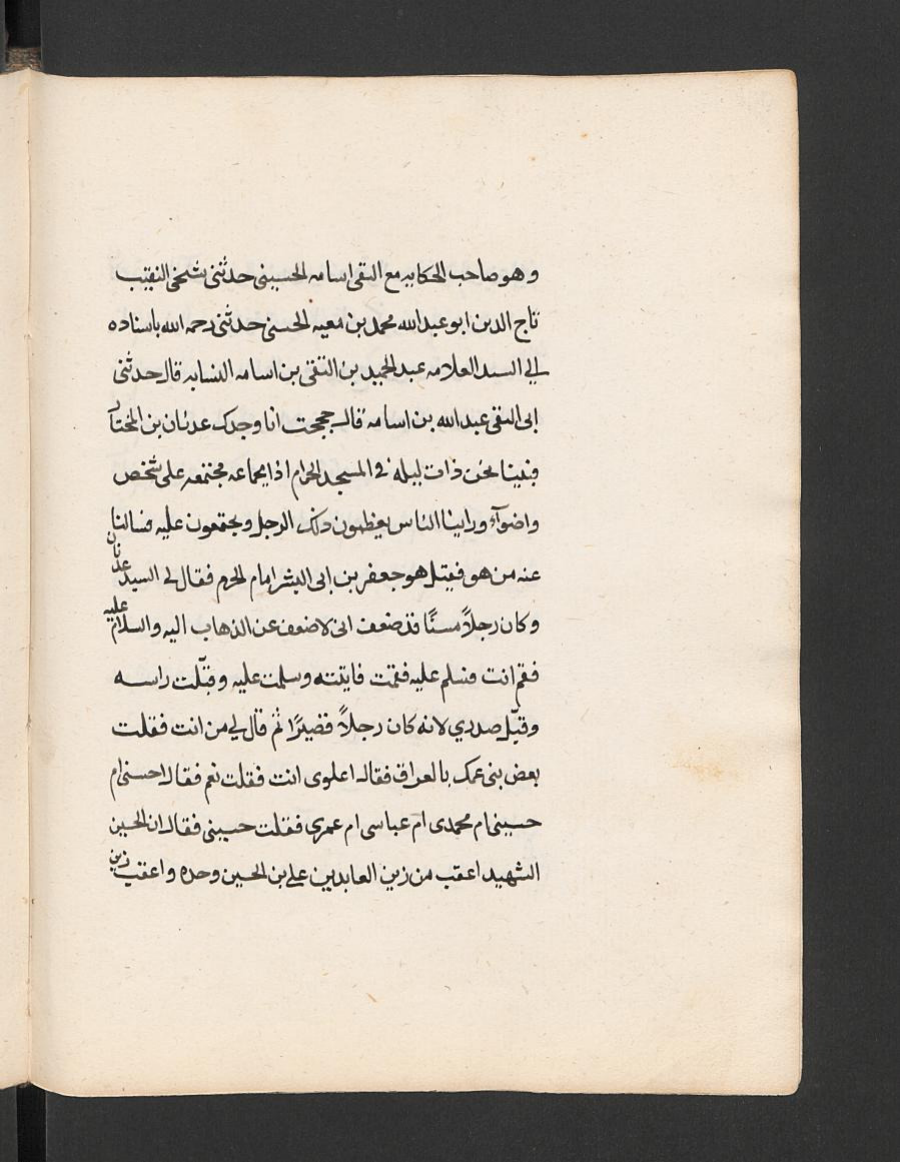 وهو صاحب الحكايه مع التقى اسامه الحسينى حدثنى شيخى النقيب
تاج الدين ابو عبدالله محمد بن معيه الحسنى حدثنى رحمه الله باسناده
الي السيد العلامه عبدالحميد بن التقى بن اسامه النسابه قال حدثنى
ابى التقى عبدالله بن اسامه قال حججت انا وجدك عدنان بن المختار
فبينا نحن ذات ليله فى المسجد الحرام اذا بجماعه مجتمعه على شخص
واضوآء وراينا الناس يعظمون ذلك الرجل ويجتمعون عليه فسالنا
عنه من هو فقيل هو جعفر بن ابى البشر امام الحرم فقال لى السيد عدنان
وكان رجلاً مسنًا قد ضعف انى لاضعف عن الذهاب اليه والسلام عليه
فقم انت فسلم عليه فقمت فايتته وسلمت عليه وقبّلت راسه
وقبّل صدرى لانه كان رجلاً قصيرًا ثم قال لى من انت فقلت
بعض بنى عمك بالعراق فقال اعلوى انت فقلت نعم فقال احسنى ام
حسينى ام محمدى ام عباسى ام عمرى فقلت حسينى فقال ان الحسين
الشهيد اعقب من زين العابدين على بن الحسين وحده واعقب زين